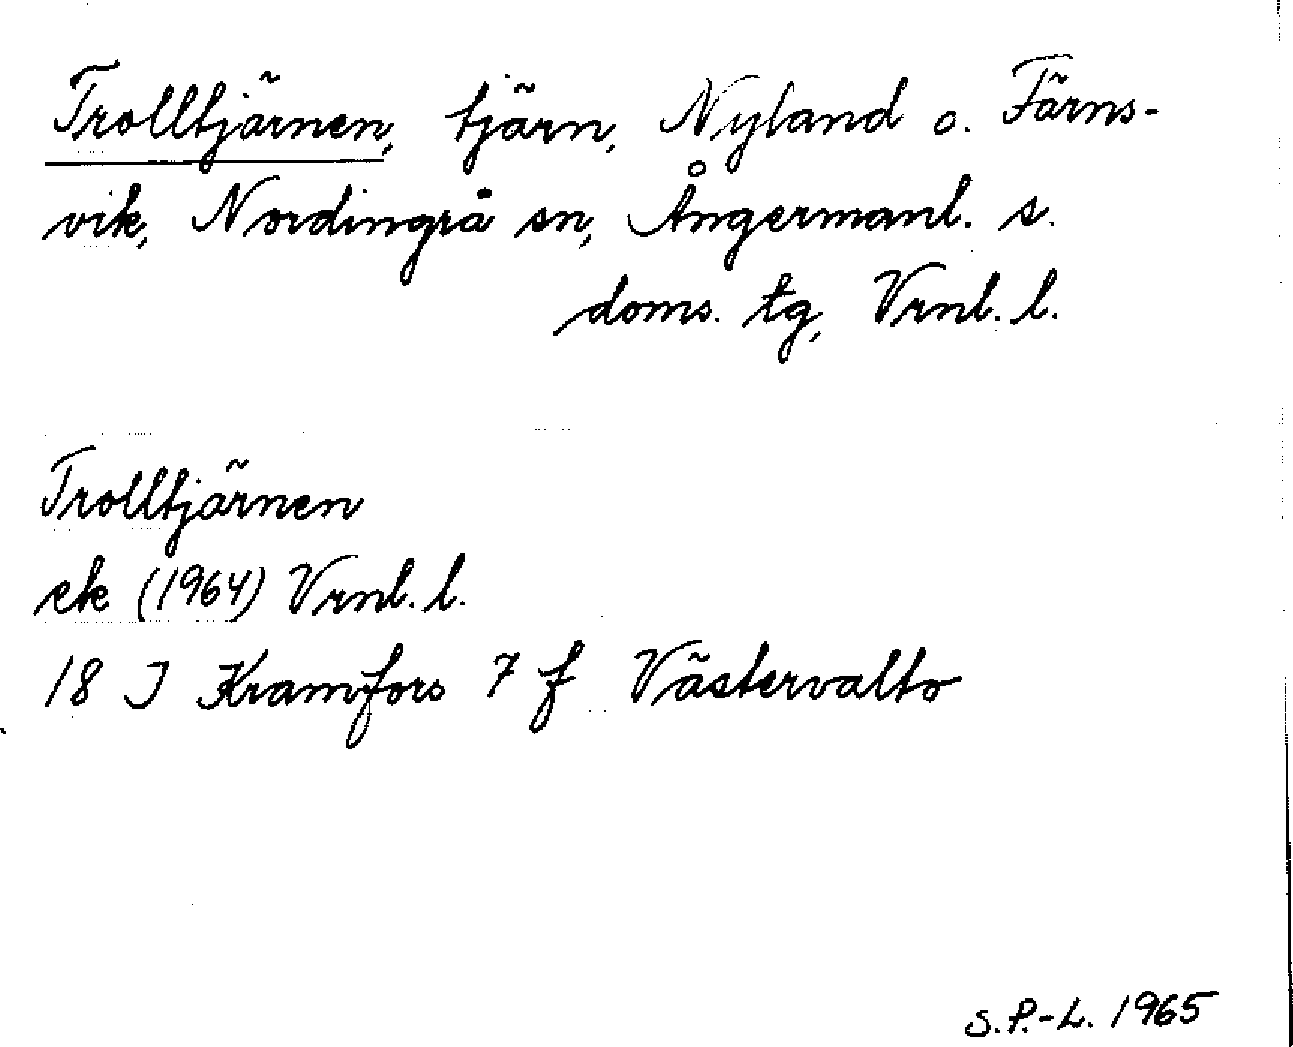 Trolltjärnen, tjärn, Nyland o. Färns-
vik, Nordingrå sn, Ångermanl. s.
doms. tg, Vrnl. l.
Trolltjärnen
ek (1964) Vrnl. l.
18 I Kramfors 7 f Västervalto
S.P.-L. 1965